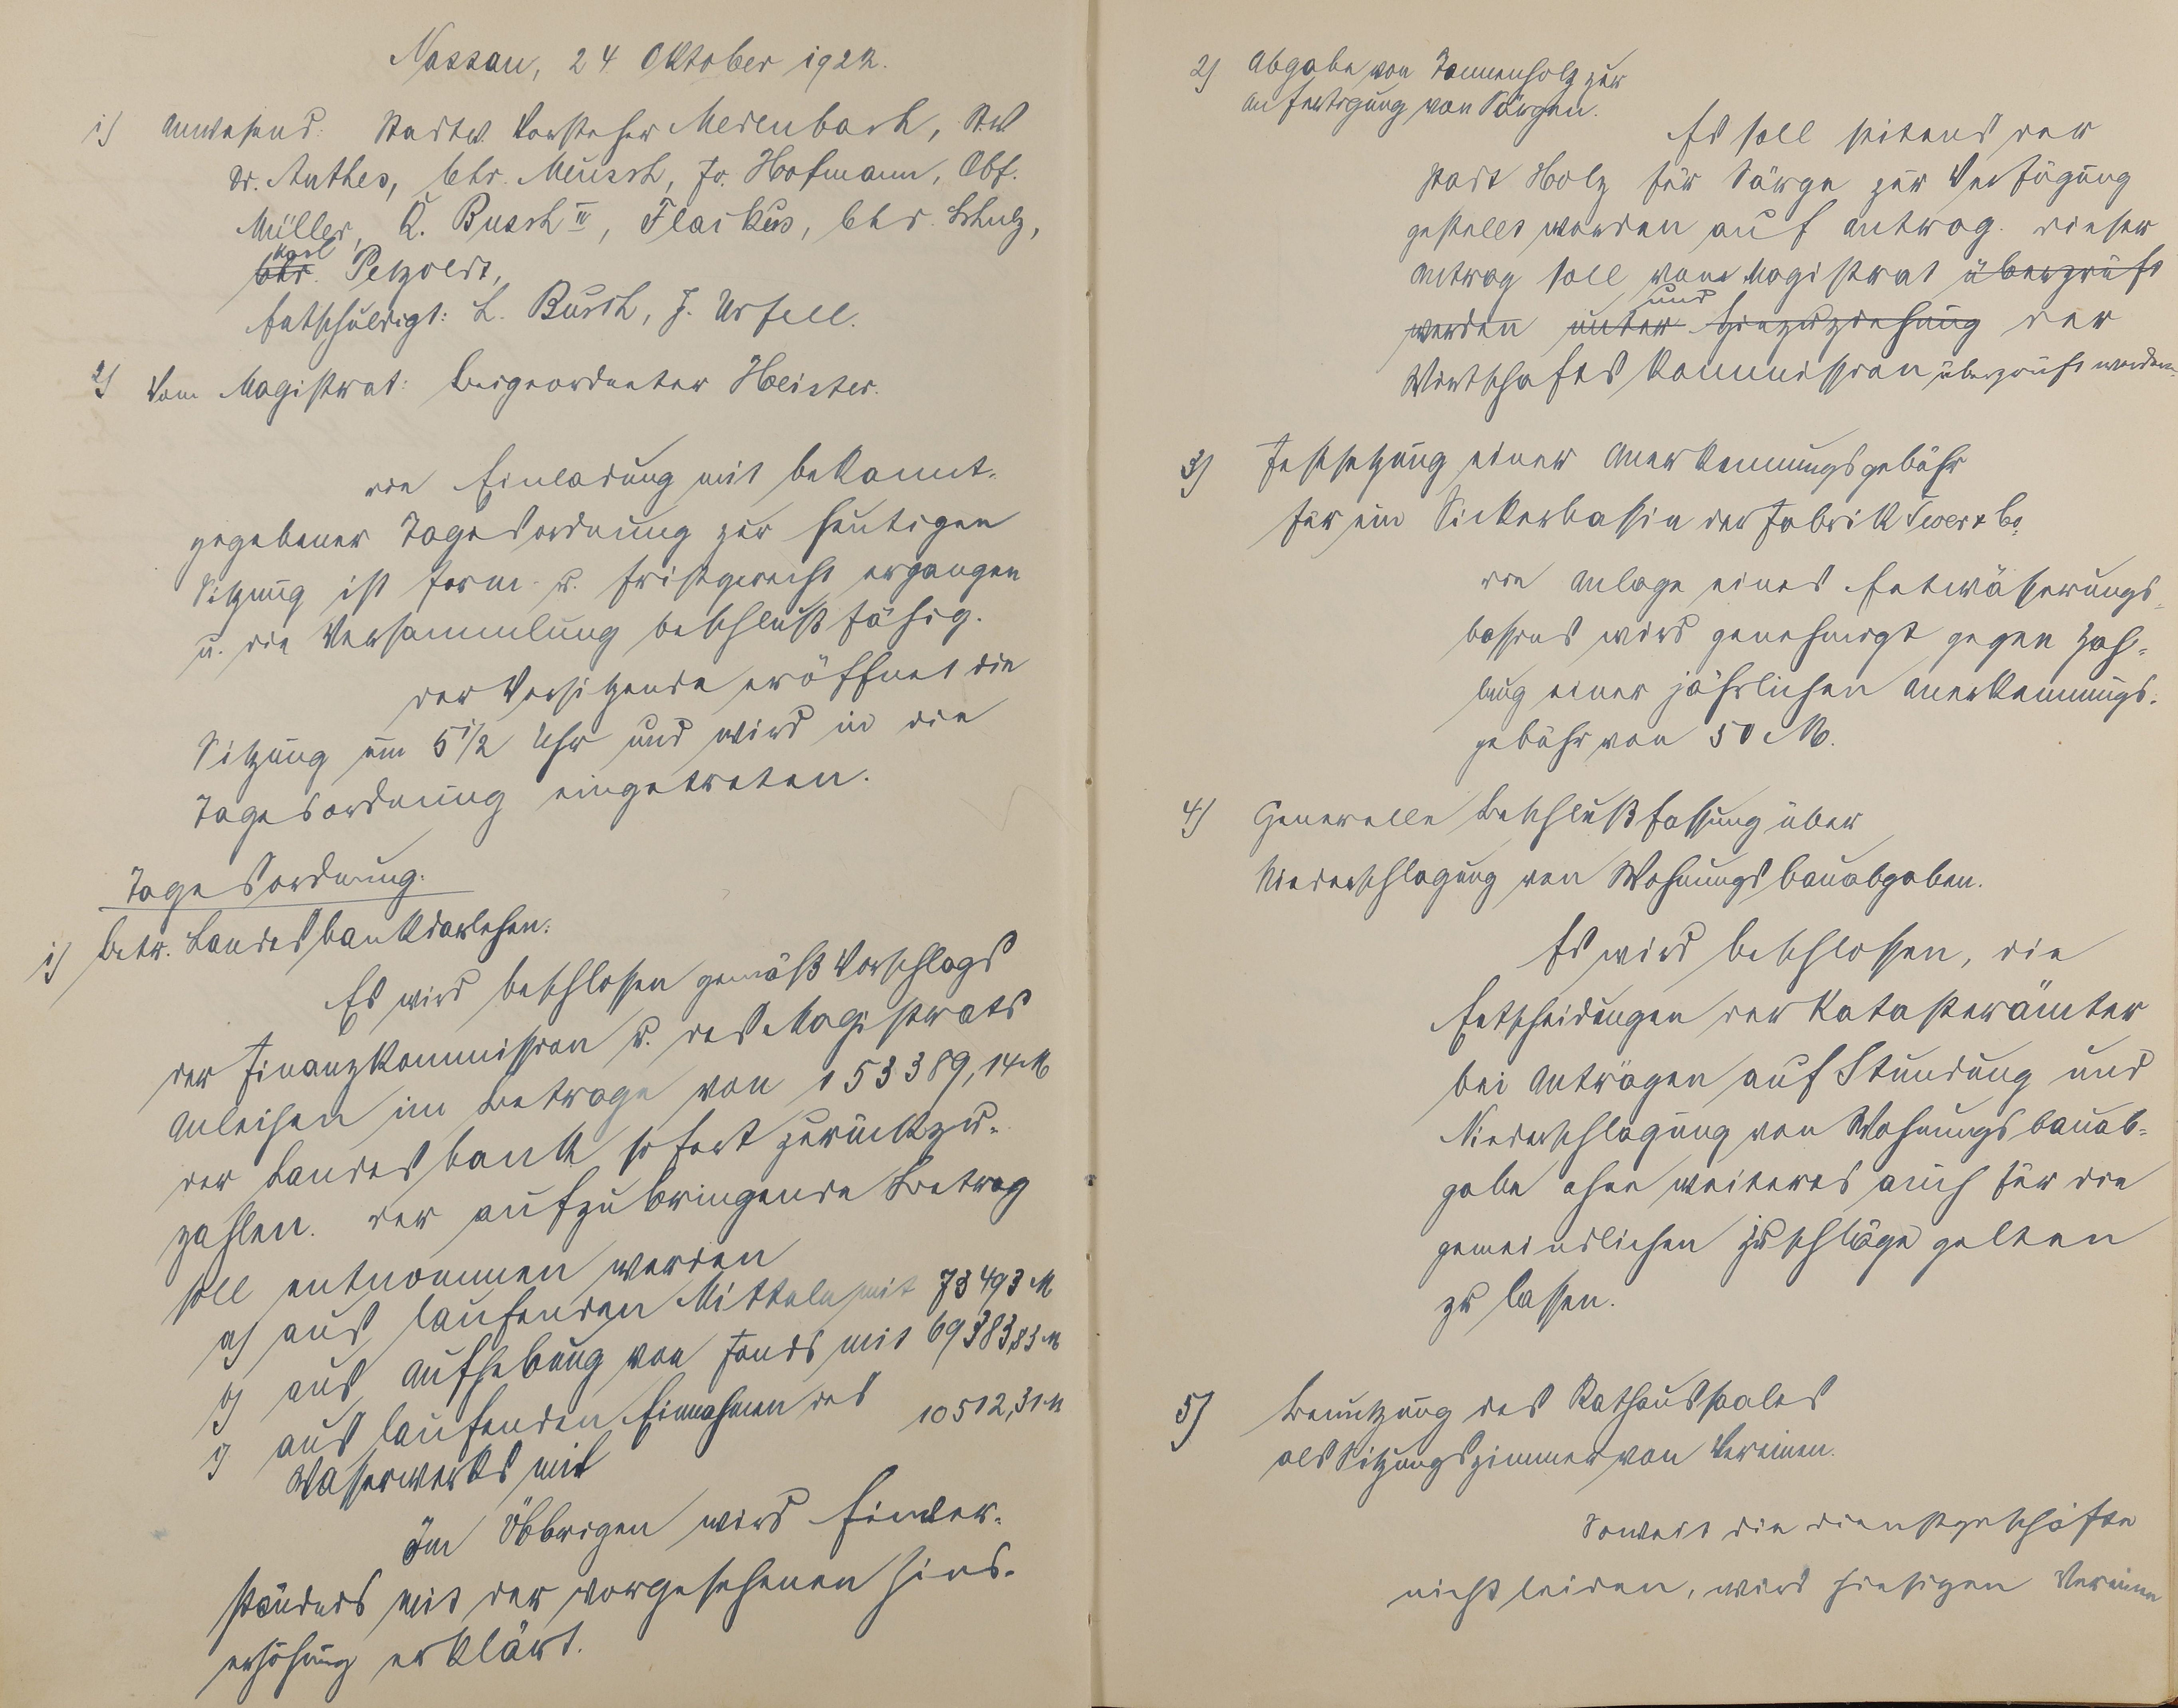 Nassau, 24 Oktober 1922.
1) Anwesend: Stadtv. Vorsteher Medenbach, St.V
Dr. Anthes, Chr. Meusch, Jo. Hofmann, Obf.
Müller, K. Busch IV, Flackus, Chr. Schulz,
Karl
Chr. Petzoldt,
Entschuldigt: L. Busch, J. Urfell.
2) Vom Magistrat: Beigeordneter Heister.
Die Einladung mit bekannt-
gegebener Tagesordnung zur heutigen
Sitzung ist form- u. fristgerecht ergangen
u. die Versammlung beschlußfähig.
Der Vorsitzende eröffnet die
Sitzung um 5 1/2 Uhr und wird in die
Tagesordnung eingetreten.
Tagesordnung.
1) Betr. Landesbankdarlehen.
Es wird beschlossen gemäß Vorschlags
der Finanzkommission u. des Magistrats
Anleihen im Betrage von 153389,14 M
der Landesbank sofort zurückzu-
zahlen. Der aufzubringende Betrag
soll entnommen werden
a) aus laufenden Mitteln mit 73493 M
b) aus Aufhebung von Fonds mit 69383,83 M
c) aus laufenden Einnahmen des
Wasserwerks mit 10512,31 M
Im Übbrigen wird Einver-
ständnis mit der vorgesehenen Zins-
erhöhung erklärt.
2) Abgabe von Tannenholz zur
Anfertigung von Särgen.
Es soll seitens der
Stadt Holz für Särge zur Verfügung
gestellt werden auf Antrag. Dieser
Antrag soll vom Magistrat überprüft
und
werden unter Hinzuziehung der
Wirtschaftskommission überprüft werden.
3) Festsetzung einer Anerkennungsgebühr
für ein Sickerbassin der Fabrik Twer & Co.
Die Anlage eines Entwässerungs-
bassins wird genehmigt gegen Zah-
lung einer jährlichen Anerkennungs-
gebühr von 50 M.
4) Generelle Beschlußfassung über
Niederschlagung von Wohnungsbauabgaben.
Es wird beschlossen, die
Entscheidungen der Katasterämter
bei Anträgen auf Stundung und
Niederschlagung von Wohnungsbauab-
gabe ohne weiteres auch für die
gemeindlichen Zuschläge gelten
zu lassen.
5) Benutzung des Rathaussaales
als Sitzungszimmer von Vereinen.
Soweit die Dienstgeschäfte
nicht leiden, wird hiesigen Vereinen